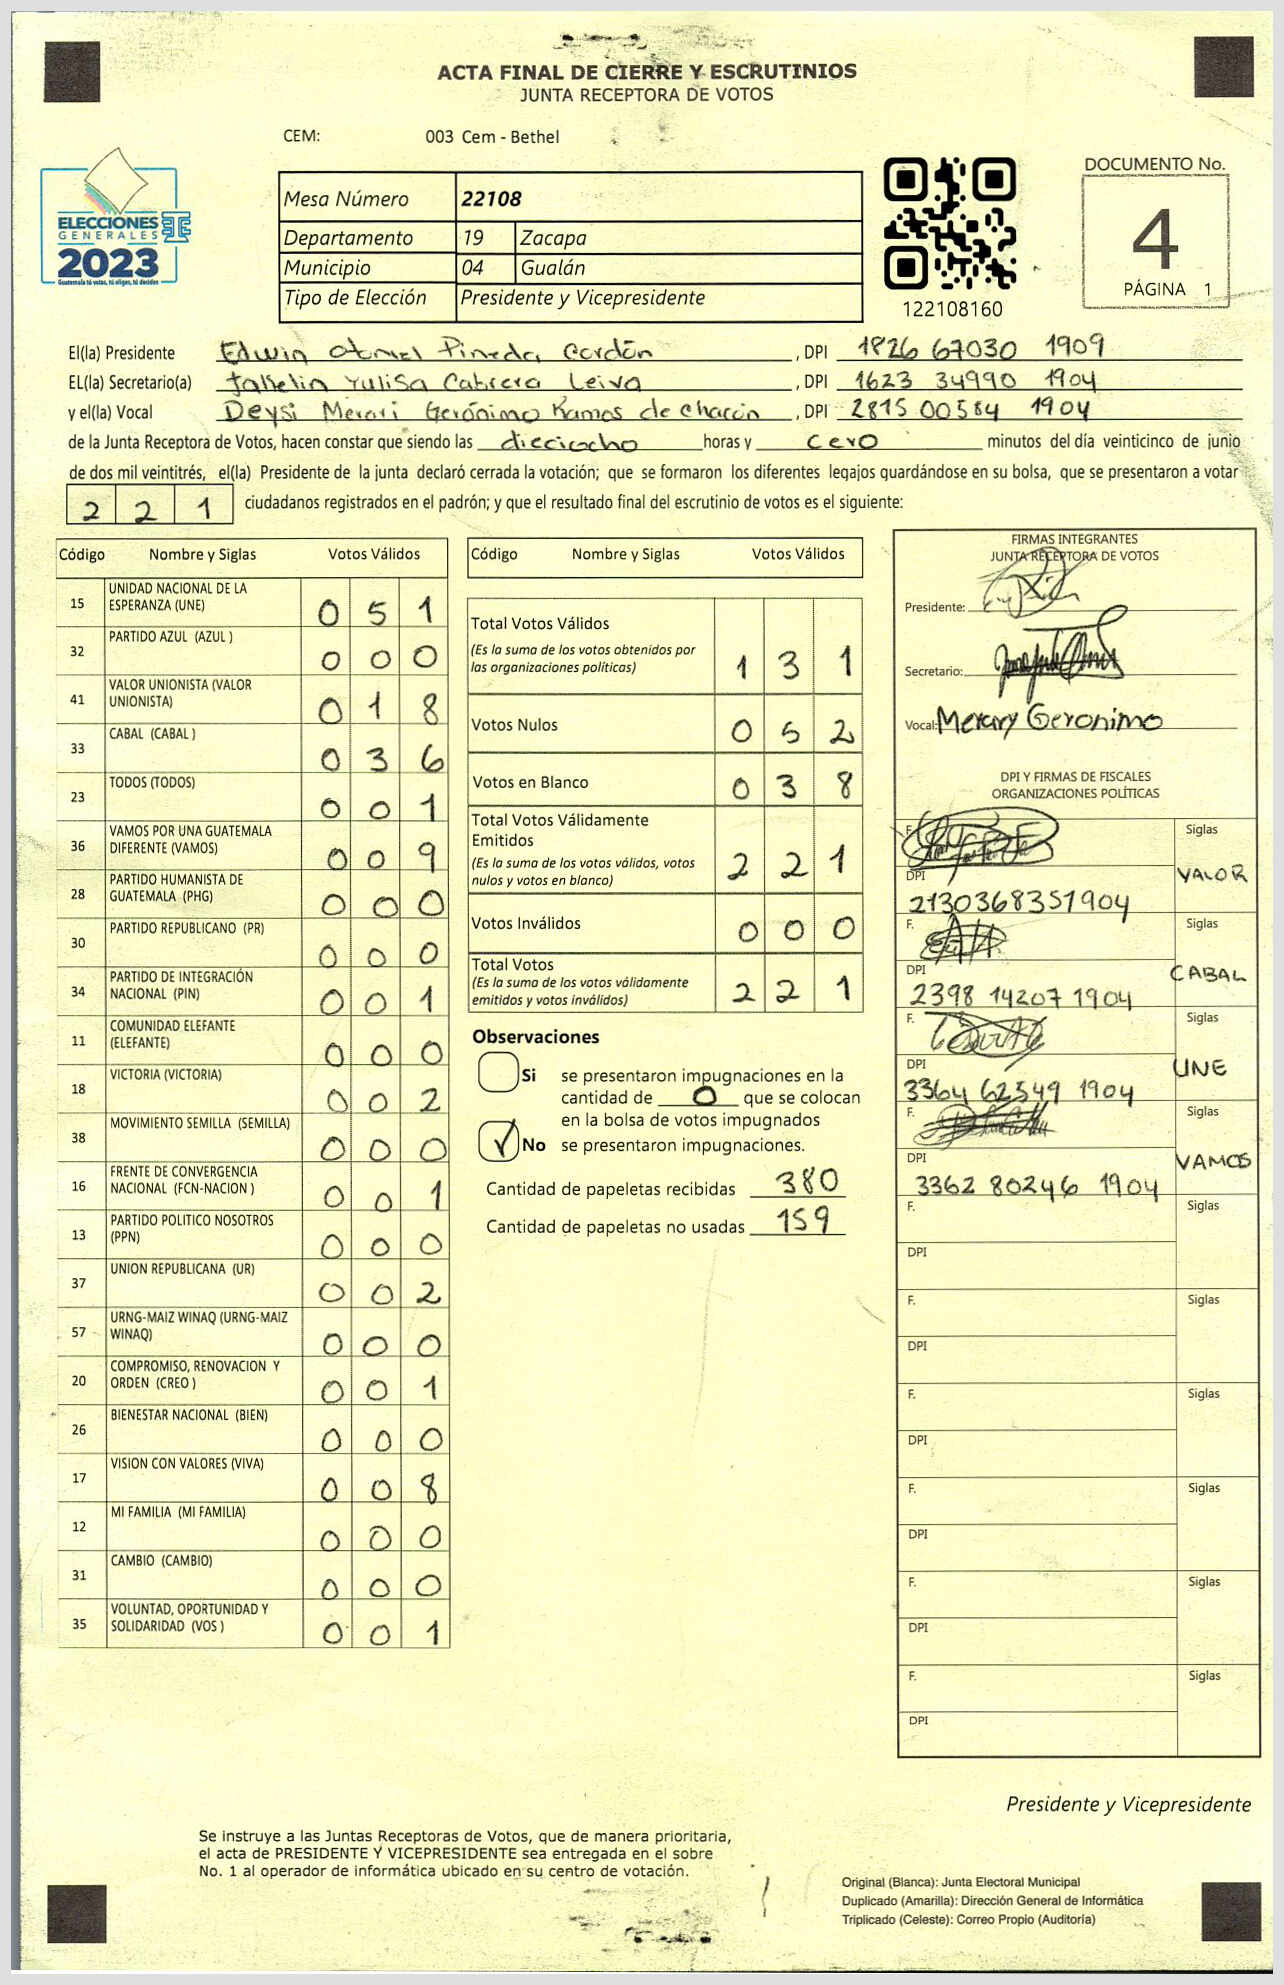 ACTA FINAL DE CIERRE Y ESCRUTINIOS
JUNTA RECEPTORA DE VOTOS
CEM: 003 Cem - Bethel
ELECCIONES
GENERALES
2023
Guatemala tú votas, tú eliges, tú decides
Mesa Número 22108
Departamento 19 Zacapa
Municipio 04 Gualán
Tipo de Elección Presidente y Vicepresidente
122108160
DOCUMENTO No.
4
PÁGINA 1
El(la) Presidente Edwin Otoniel Pineda Cordón , DPI 1826 67030 1909
EL(la) Secretario(a) Yulisa Cabrera Leiva , DPI 1623 34990 1904
y el(la) Vocal Deysi Merari Gerónimo Ramos de Chacón , DPI 2815 00584 1904
de la Junta Receptora de Votos, hacen constar que siendo las dieciocho horas y cero minutos del día veinticinco de junio
de dos mil veintitrés, el(la) Presidente de la junta declaró cerrada la votación; que se formaron los diferentes legajos guardándose en su bolsa, que se presentaron a votar
2 2 1 ciudadanos registrados en el padrón; y que el resultado final del escrutinio de votos es el siguiente:
Código Nombre y Siglas Votos Válidos
15 UNIDAD NACIONAL DE LA ESPERANZA (UNE) 0 5 1
32 PARTIDO AZUL (AZUL ) 0 0 0
41 VALOR UNIONISTA (VALOR UNIONISTA) 0 1 8
33 CABAL (CABAL ) 0 3 6
23 TODOS (TODOS) 0 0 1
36 VAMOS POR UNA GUATEMALA DIFERENTE (VAMOS) 0 0 9
28 PARTIDO HUMANISTA DE GUATEMALA (PHG) 0 0 0
30 PARTIDO REPUBLICANO (PR) 0 0 0
34 PARTIDO DE INTEGRACIÓN NACIONAL (PIN) 0 0 1
11 COMUNIDAD ELEFANTE (ELEFANTE) 0 0 0
18 VICTORIA (VICTORIA) 0 0 2
38 MOVIMIENTO SEMILLA (SEMILLA) 0 0 0
16 FRENTE DE CONVERGENCIA NACIONAL (FCN-NACION ) 0 0 1
13 PARTIDO POLITICO NOSOTROS (PPN) 0 0 0
37 UNION REPUBLICANA (UR) 0 0 2
57 URNG-MAIZ WINAQ (URNG-MAIZ WINAQ) 0 0 0
20 COMPROMISO, RENOVACION Y ORDEN (CREO ) 0 0 1
26 BIENESTAR NACIONAL (BIEN) 0 0 0
17 VISION CON VALORES (VIVA) 0 0 8
12 MI FAMILIA (MI FAMILIA) 0 0 0
31 CAMBIO (CAMBIO) 0 0 0
35 VOLUNTAD, OPORTUNIDAD Y SOLIDARIDAD (VOS ) 0 0 1
Código Nombre y Siglas Votos Válidos
Total Votos Válidos
(Es la suma de los votos obtenidos por
las organizaciones políticas) 1 3 1
Votos Nulos 0 5 2
Votos en Blanco 0 3 8
Total Votos Válidamente
Emitidos
(Es la suma de los votos válidos, votos
nulos y votos en blanco) 2 2 1
Votos Inválidos 0 0 0
Total Votos
(Es la suma de los votos válidamente
emitidos y votos inválidos) 2 2 1
Observaciones
Si se presentaron impugnaciones en la
cantidad de 0 que se colocan
en la bolsa de votos impugnados
No se presentaron impugnaciones.
Cantidad de papeletas recibidas 380
Cantidad de papeletas no usadas 159
FIRMAS INTEGRANTES
JUNTA RECEPTORA DE VOTOS
Presidente:
Secretario:
Vocal: Merary Geronimo
DPI Y FIRMAS DE FISCALES
ORGANIZACIONES POLÍTICAS
F. Siglas
DPI VALOR
2130368351904
F. Siglas
DPI CABAL
2398 14207 1904
F. Siglas
DPI UNE
3364 62549 1904
F. Siglas
DPI VAMOS
3362 80246 1904
F. Siglas
DPI
F. Siglas
DPI
F. Siglas
DPI
F. Siglas
DPI
F. Siglas
DPI
F. Siglas
DPI
Presidente y Vicepresidente
Se instruye a las Juntas Receptoras de Votos, que de manera prioritaria,
el acta de PRESIDENTE Y VICEPRESIDENTE sea entregada en el sobre
No. 1 al operador de informática ubicado en su centro de votación.
Original (Blanca): Junta Electoral Municipal
Duplicado (Amarilla): Dirección General de Informática
Triplicado (Celeste): Correo Propio (Auditoría)